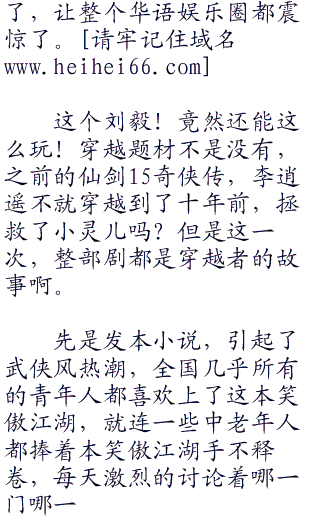 了，让整个华语娱乐圈都震
惊了。[请牢记住域名
www.heihei66.com]
这个刘毅！竟然还能这
么玩！穿越题材不是没有，
之前的仙剑15奇侠传，李逍
遥不就穿越到了十年前，拯
救了小灵儿吗？但是这一
次，整部剧都是穿越者的故
事啊。
先是发本小说，引起了
武侠风热潮，全国几乎所有
的青年人都喜欢上了这本笑
傲江湖，就连一些中老年人
都捧着本笑傲江湖手不释
卷，每天激烈的讨论着哪一
门哪一